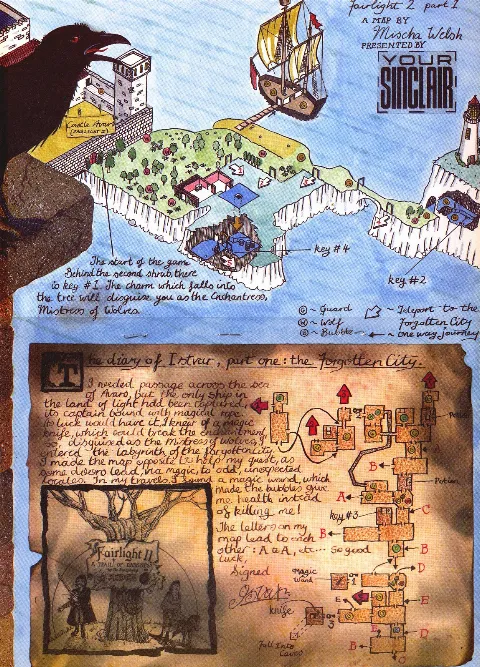 Fairlight 2 part 1
A MAP BY
Mischa Welsh
PRESENTED BY
YOUR
SINCLAIR
Castle Avars
(FAIRLIGHT I)
The start of the game
Behind the second shrub there
is key #1. The charm which falls into
the tree will disguise you as the Enchantress,
Mistress of Wolves
key #4
key #2
G ~ Guard
W ~ Wolf
B ~ Bubble
~ Teleport to the
Forgotten City
~ one way journey
The diary of Isvar, part one: the Forgotten City.
I needed passage across the sea
of Avars, but the only ship in
the land of light had been captured,
its captain bound with magical rope.
As luck would have it, I knew of a magic
knife, which could break the enchantment
disguised as the Mistress of wolves, I
entered the labyrinth of the forgotten city.
I made the map opposite to help my quest, as
some doors lead, via magic, to odd, unexpected
locales. In my travels I found a magic wand, which
made the bubbles give
me health instead
of killing me!
The letters on my
map lead to each
other: A to A, etc... So good
luck,
Signed
Isvar
Fairlight II
A TRAIL OF DARKNESS
Potion
Potion
B
A
C
key #3
B
B
D
Magic
Wand
E
E
knife
E
D
B
Fall Into
Caves